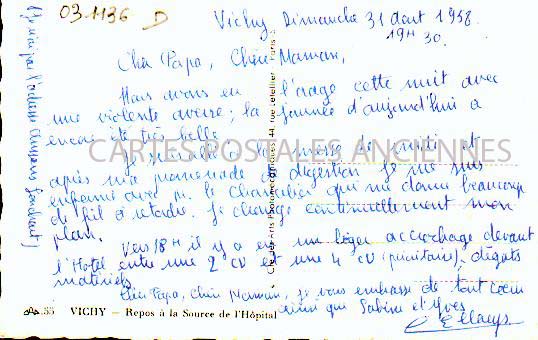 03-1136 D
Vichy, Dimanche 31 août 1958.
19H 30.
Cher Papa, Chère Maman,
Nous avons eu l'orage cette nuit avec
une violente averse ; la journée d'aujourd'hui a
encore été très belle.
CARTES POSTALES ANCIENNES
messe de midi et
après une promenade de digestion je me suis
enfermé avec M. le Chancelier qui me donne beaucoup
de fil à retordre. Je change continuellement mon
plan.
Vers 18H il y a eu un léger accrochage devant
l'Hotel entre une 2 CV et une 4 CV (prioritaire), dégâts
matériels.
Cher Papa, Chère Maman, je vous embrasse de tout cœur
ainsi que Sabine et Yves.
33 VICHY — Repos à la Source de l'Hôpital
Cie des Arts Photomécaniques, 44, rue Letellier - Paris